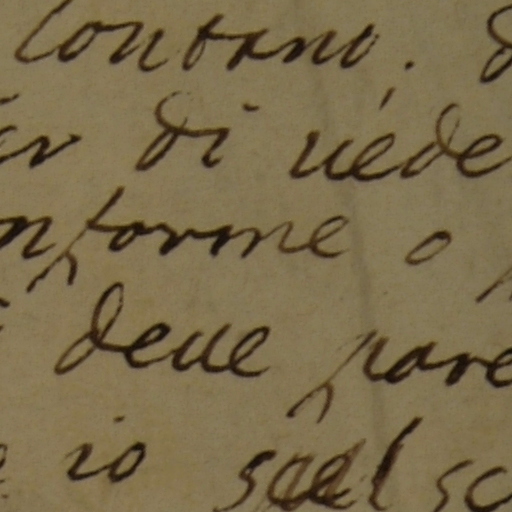 lontano. d
er di uéde
nforme o
i deue pare
e io sc